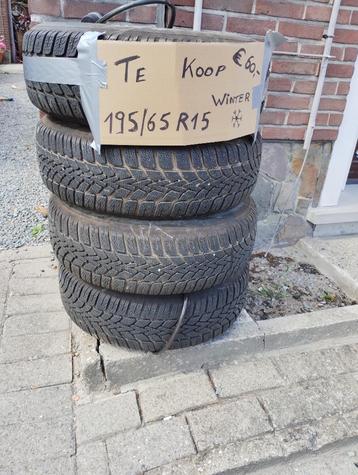 TE KOOP € 60,-
WINTER
195/65 R15